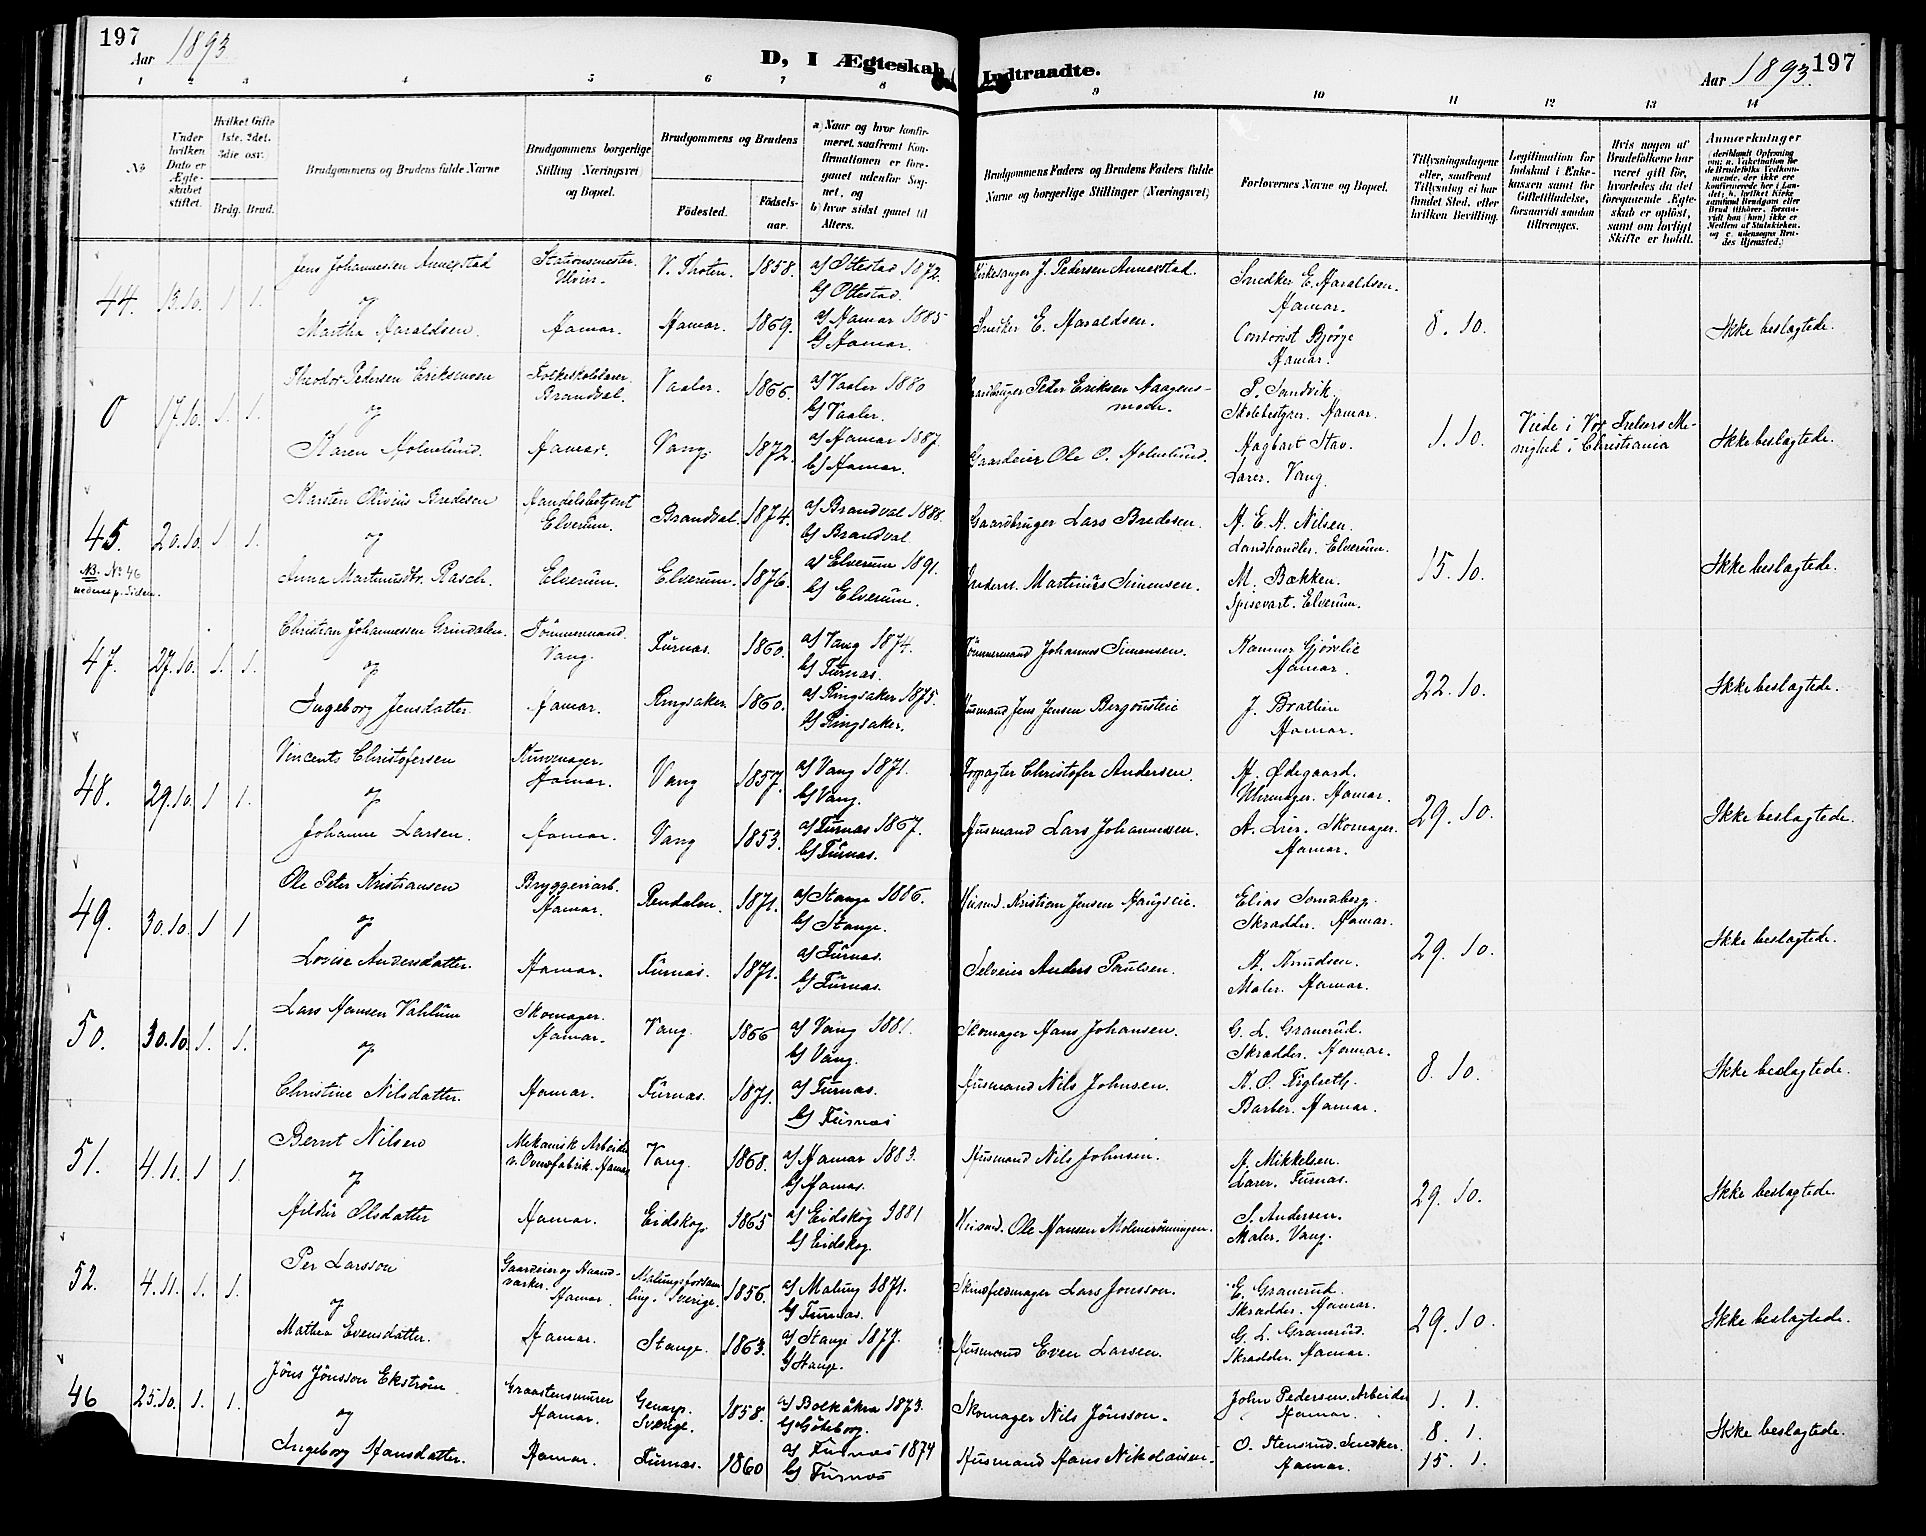 197
Aar 1893
D, I Ægteskab Indtraadte.
Aar 1893. 197
1 2 3 4 5 6 7 8 9 10 11 12 13 14
No
Under hvilken Dato er Ægteskabet stiftet.
Hvilket Gifte 1ste, 2det, 3die osv.
Brdg. Brud.
Brudgommens og Brudens fulde Navne
Brudgommens borgerlige Stilling (Næringsvei) og Bopæl.
Brudgommens og Brudens
Födested.
Födselsaar.
a) Naar og hvor konfirmeret, saafremt Konfirmationen er foregaaet udenfor Sognet, og
b) hvor sidst gaaet til Alters.
Brudgommens Faders og Brudens Faders fulde Navne og borgerlige Stillinger (Næringsvei)
Forlovernes Navne og Bopæl.
Tillysningsdagene eller, saafremt Tillysning ei har fundet Sted, efter hvilken Bevilling.
Legitimation for Indskud i Enkekassen samt for Giftetilladelse, forsaavidt saadan tiltrænges.
Hvis nogen af Brudefolkene har været gift för, hvorledes da det foregaaende Ægteskab er oplöst, samt om lovligt Skifte er holdt.
Anmærkninger
44. 13.10. 1 1. Jens Johannessen Annerstad Stationsmester V. Thoten. 1858. a) Ottestad 1872. Kirkesanger J. Pedersen Annerstad. Snedker E. Haraldsen.
og b) Ottestad. Hamar. 8.10.
Martha Haraldsen. Hamar. Hamar. 1869. a) Hamar 1885 Snedker E. Haraldsen. Ikke beslagtede.
b) Hamar. Hamar.
0 17.10. 1. 1. Theodor Pedersen Vaaler. 1866. a) Vaaler 1880 Gaardbruger Peter Eriksen P. Sandvik.
og Brandval. b) Vaaler. Skolebestyrer. Hamar. 1.10. Viede i Vor Frelsers Menighed i Christiania
Karen Holmlund Hamar. Vang. 1872. a) Hamar 1887. Gaardeier Ole O. Holmlund. Hagbart Stav. Ikke beslagtede.
b) Hamar. Lærer. Vang.
45. 20.10. 1 1. Karsten Olivius Bredesen Handelsbetjent Brandval. 1874. a) Brandval 1888. Gaardbruger Lars Bredesen. H. E. H. Nilsen.
og Elverum. b) Brandval Landhandler. Elverum. 15.10.
NB. No 46 nederst p. Siden.
Anna Martinusdtr. Rasch. Elverum. Elverum. 1876. a) Elverum 1891. Martinus Simensen. M. Bækken. Ikke beslagtede.
b) Elverum. Spisevært. Elverum.
47. 27.10. 1. 1. Christian Johannessen Grindalen. Tömmermand Furnas. 1860. a) Vang 1874. Tömmermand Johannes Simensen.
og Vang. b) Furnas. Hamar. 22.10.
Ingeborg Jensdatter. Hamar. Ringsaker. 1860. a) Ringsaker 1875. Husmand Jens Jensen J. Bratlien Ikke beslagtede.
b) Ringsaker. Hamar.
48. 29.10. 1 1. Vincents Christofersen Kurvemager. Vang 1857. a) Vang 1871. Forpagter Christofer Andersen. H. Ödegaard.
og Hamar. b) Vang. Uhrmager. Hamar. 29.10.
Johanne Larsen. Hamar. Vang 1853. a) Furnas 1867. Husmand Lars Johannessen. A. Lier. Skomager. Ikke beslagtede.
b) Furnas. Hamar.
49. 30.10. 1 1 Ole Peter Kristiansen Bryggeriarb. Rendalen. 1871. a) Stange 1886. Kristian Jensen Haugseie. Elias
og Hamar. b) Stange. Skrædder. Hamar. 29.10.
Lovise Andersdatter. Hamar. Furnas. 1871. a) Furnas. Selveier Anders Paulsen. K. Knudsen. Ikke beslagtede.
b) Furnas. Maler. Hamar.
50. 30.10. 1. 1. Lars Hansen Vahlum Skomager. Vang. 1866 a) Vang 1881. Skomager Hans Johansen. G. L. Granerud.
og Hamar. b) Vang. Skrædder. Hamar. 8.10.
Christine Nilsdatter. Hamar. Furnas. 1871. a) Furnas. Husmand Nils Johnsen. Ikke beslagtede.
b) Furnas Barber. Hamar.
51. 4.11. 1 1. Bernt Nilsen Mekanisk Arbeider Vang. 1868. a) Hamar 1883. Husmand Nils Johnsen. H. Mikkelsen.
og v. Ovnsfabrik. Hamar b) Hamar. Lærer. Furnas. 29.10.
Hilda Olsdatter Hamar. Eidskog. 1865 a) Eidskog 1881 Ole Hansen S. Andersen. Ikke beslagtede.
b) Eidskog. Maler. Vang.
52. 4.11. 1. 1. Per Larsson Gaardeier og Haandværker. Malungsforsamling. Sverige. 1856. a) Malung 1871. Skindfeldmager Lars Jonsson. E. Granerud.
og Hamar. b) Furnas. Skrædder. Hamar. 29.10.
Mathea Evensdatter. Hamar. Stange. 1863. a) Stange 1877. Husmand Even Larsen. G. L. Granerud. Ikke beslagtede.
b) Stange. Skrædder. Hamar.
46 25.10. 1. 1. Jöns Jönsson Ekström Graastensmurer Genarp. 1858. a) Bolkåkra 1873. Skomager Nils Jönsson. John Pedersen. Arbeider 1.1.
og Hamar. Sverige. b) Göteborg. Hamar. 8.1.
Ingeborg Hansdatter. Hamar. Furnas. 1860 a) Furnas 1874 Husmand Hans Nikolaisen O. Stensrud. Snedker. 15.1. Ikke beslagtede.
b) Furnas Hamar.